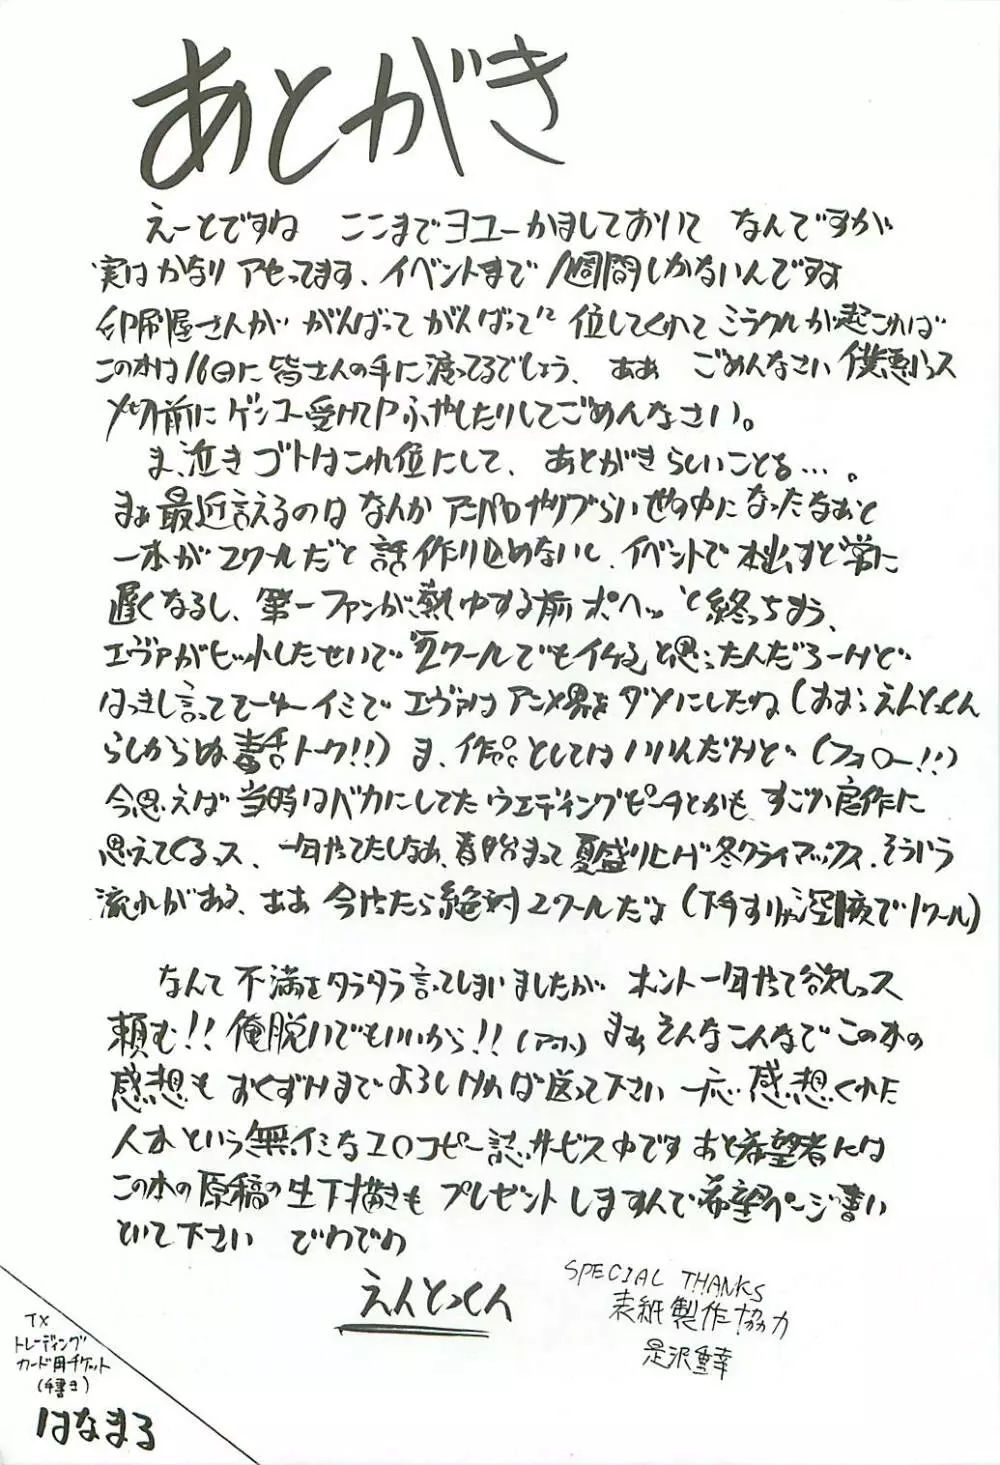 あとがき
えーとですね ここまでヨユーかましておいて なんですが
実はかなりアセってます、イベントまで1週間しかないんですよ
印刷屋さんが がんばってがんばって 位してくれてミラクルが起これば
この本は16日に皆さんの手に渡ってるでしょう、ああ ごめんなさい僕悪いっス
〆切前にゲンコー受けてPふやしたりしてごめんなさい。
ま、泣きゴトはこれ位にして、あとがきらしいことを…。
まぁ最近言えるのは なんか やりづらい世の中になったなぁと
一本が2クールだと話作り込めないし、イベントで本出すと常に
遅くなるし、第一ファンが熱中する前 ポヘッ と終っちまう、
エヴァがヒットしたせいで"2クールでもイケる"と思ったんだろーけど
はっきし言って イミで エヴァはアニメ界をダメにしたね(おおっえんとっくん
らしからぬ毒舌トーク!!)ま、作品としてはいいんだけど(フォロー!!)
今思えば当時はバカにしてたウエディングピーチとかも すごい良作に
思えてくるっス、一年やってたしなぁ、春始まって夏盛り上げ冬クライマックス、そういう
流れがある、ああ 今やったら絶対2クールだよ(下手すりゃ深夜で1クール)
なんて不満をタラタラ言ってしまいましたが ホント一年やって欲しいっス
頼む!!俺脱いでもいいから!!(アホ) まぁそんなこんなでこの本の
感想も おくづけまでよろしければ送って下さい 一応感想くれた
人本という無イミなエロコピー誌サービス中です あと希望者には
この本の原稿の生下描きも プレゼントしますんで希望ページ書い
といて下さい でわでわ
えんとっくん
SPECIAL THANKS
表紙製作協力
是沢重幸
TX
トレーディング
カード用チケット
(手書き)
はなまる